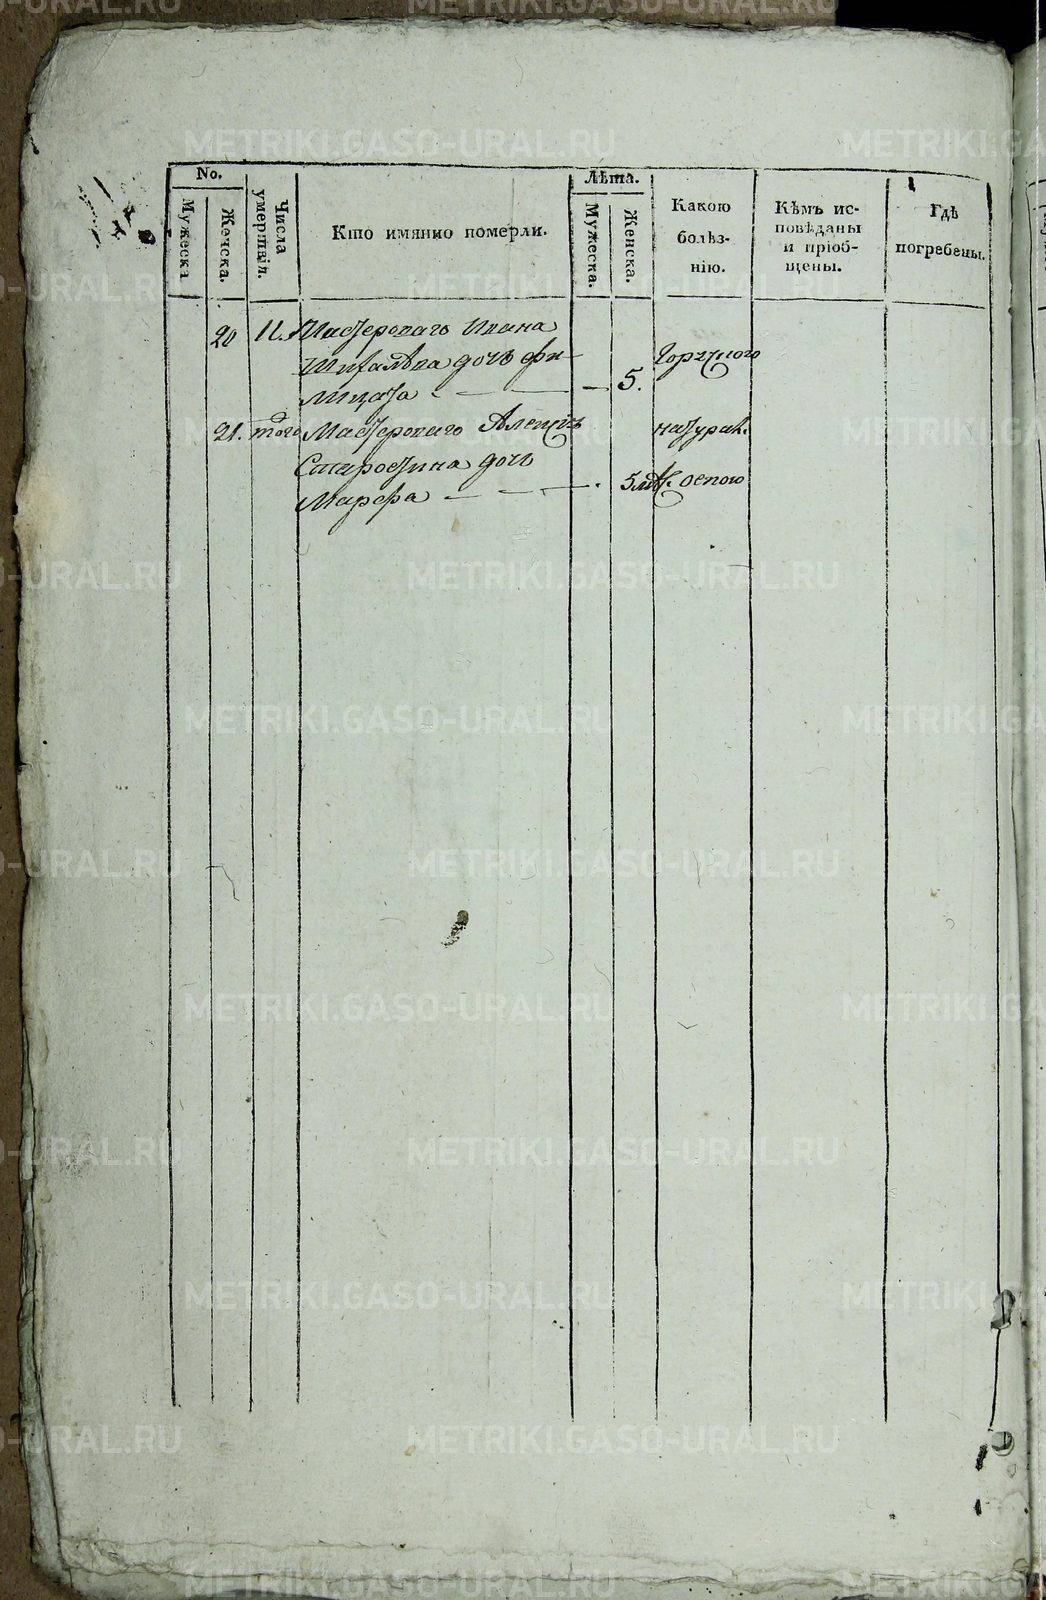 No.
Мужеска.
Женска.
Числа умершвiя.
Кто имянно померли.
Лѣта.
Мужеска.
Женска.
Какою
болѣз-
нiю.
Кѣмъ ис-
повѣданы
и прiоб-
щены.
Гдѣ
погребены.
20 11. Мастероваго Ивана
дочь Фи-
лицата — — — 5. Горячкою
21. того Мастероваго Алексѣя натурал.
Старостина дочь
Марфа — — — 5 лѣт. оспою
METRIKI.GASO-URAL.RU